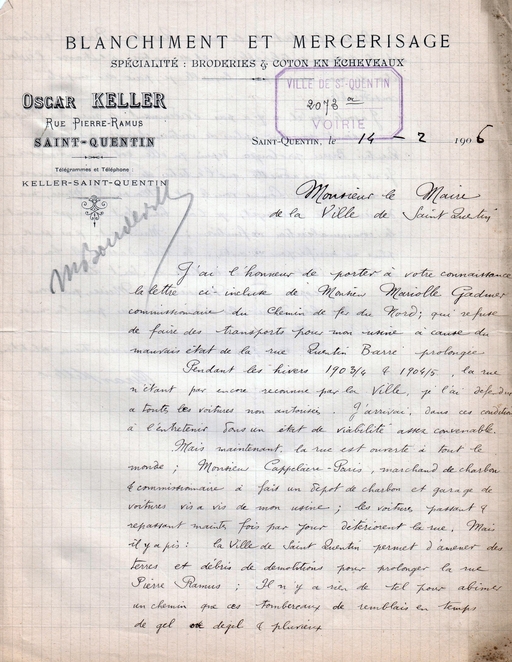 BLANCHIMENT ET MERCERISAGE
SPÉCIALITÉ : BRODERIES & COTON EN ÉCHEVEAUX
OSCAR KELLER
RUE PIERRE-RAMUS
SAINT-QUENTIN
Télégrammes et Téléphone :
KELLER-SAINT-QUENTIN
VILLE DE ST-QUENTIN
2073
VOIRIE
SAINT-QUENTIN, le 14 – 2 1906
Monsieur le Maire
de la Ville de Saint Quentin
J'ai l'honneur de porter à votre connaissance
la lettre ci-incluse de Monsieur Mariolle Gadmer
commissionaire du Chemin de fer du Nord; qui refuse
de faire des transports pour mon usine à cause du
mauvais état de la rue Quentin Barré prolongée
Pendant les hivers 1903/4 & 1904/5, la rue
n'étant par encore reconnue par la Ville, je l'ai defendue
a toutes les voitures non autorisées. J'arrivai, dans ces conditions
à l'entretenir dans un état de viabilité assez convenable.
Mais maintenant, la rue est ouverte à tout le
monde ; Monsieur Cappelaire-Paris, marchand de charbon
& commissionaire à fait un depot de charbon et garage de
voitures vis a vis de mon usine ; les voitures passant &
repassant maints fois par jour détériorent la rue. Mais
il y a pis : la Ville de Saint Quentin permet d'amener des
terres et débris de demolitions pour prolonger la rue
Pierre Ramus ; Il n'y a rien de tel pour abimer
un chemin que ces tombereaux de remblais en temps
de gel ou degel & pluvieux